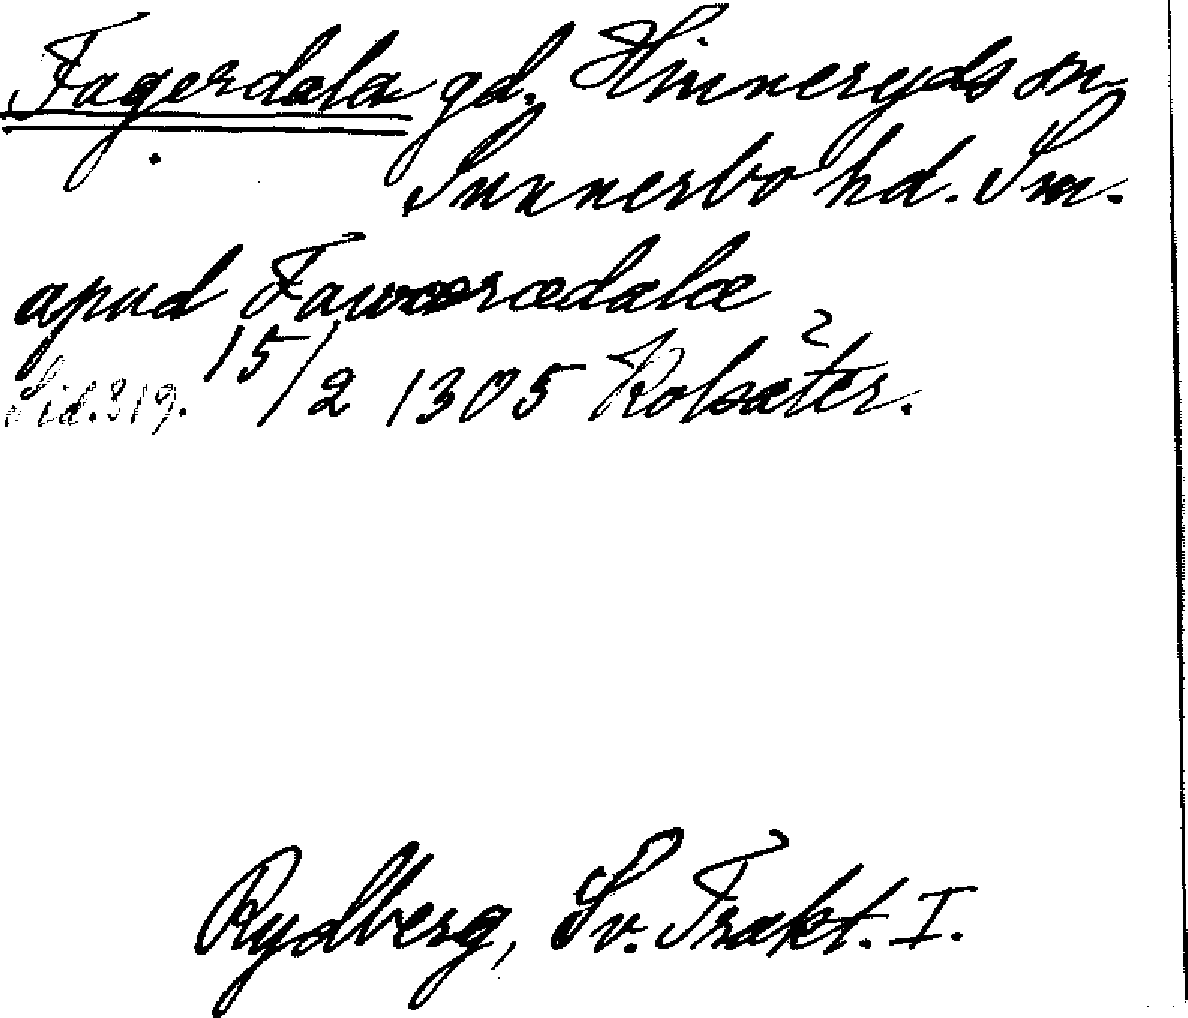 Fagerdala gd. Hinneryds sn.
Sunnerbo hd. Sm.
apud Fawærædalæ
Sid. 319. 15/2 1305 Kolsäter.
Rydberg, Sv. Trakt. I.